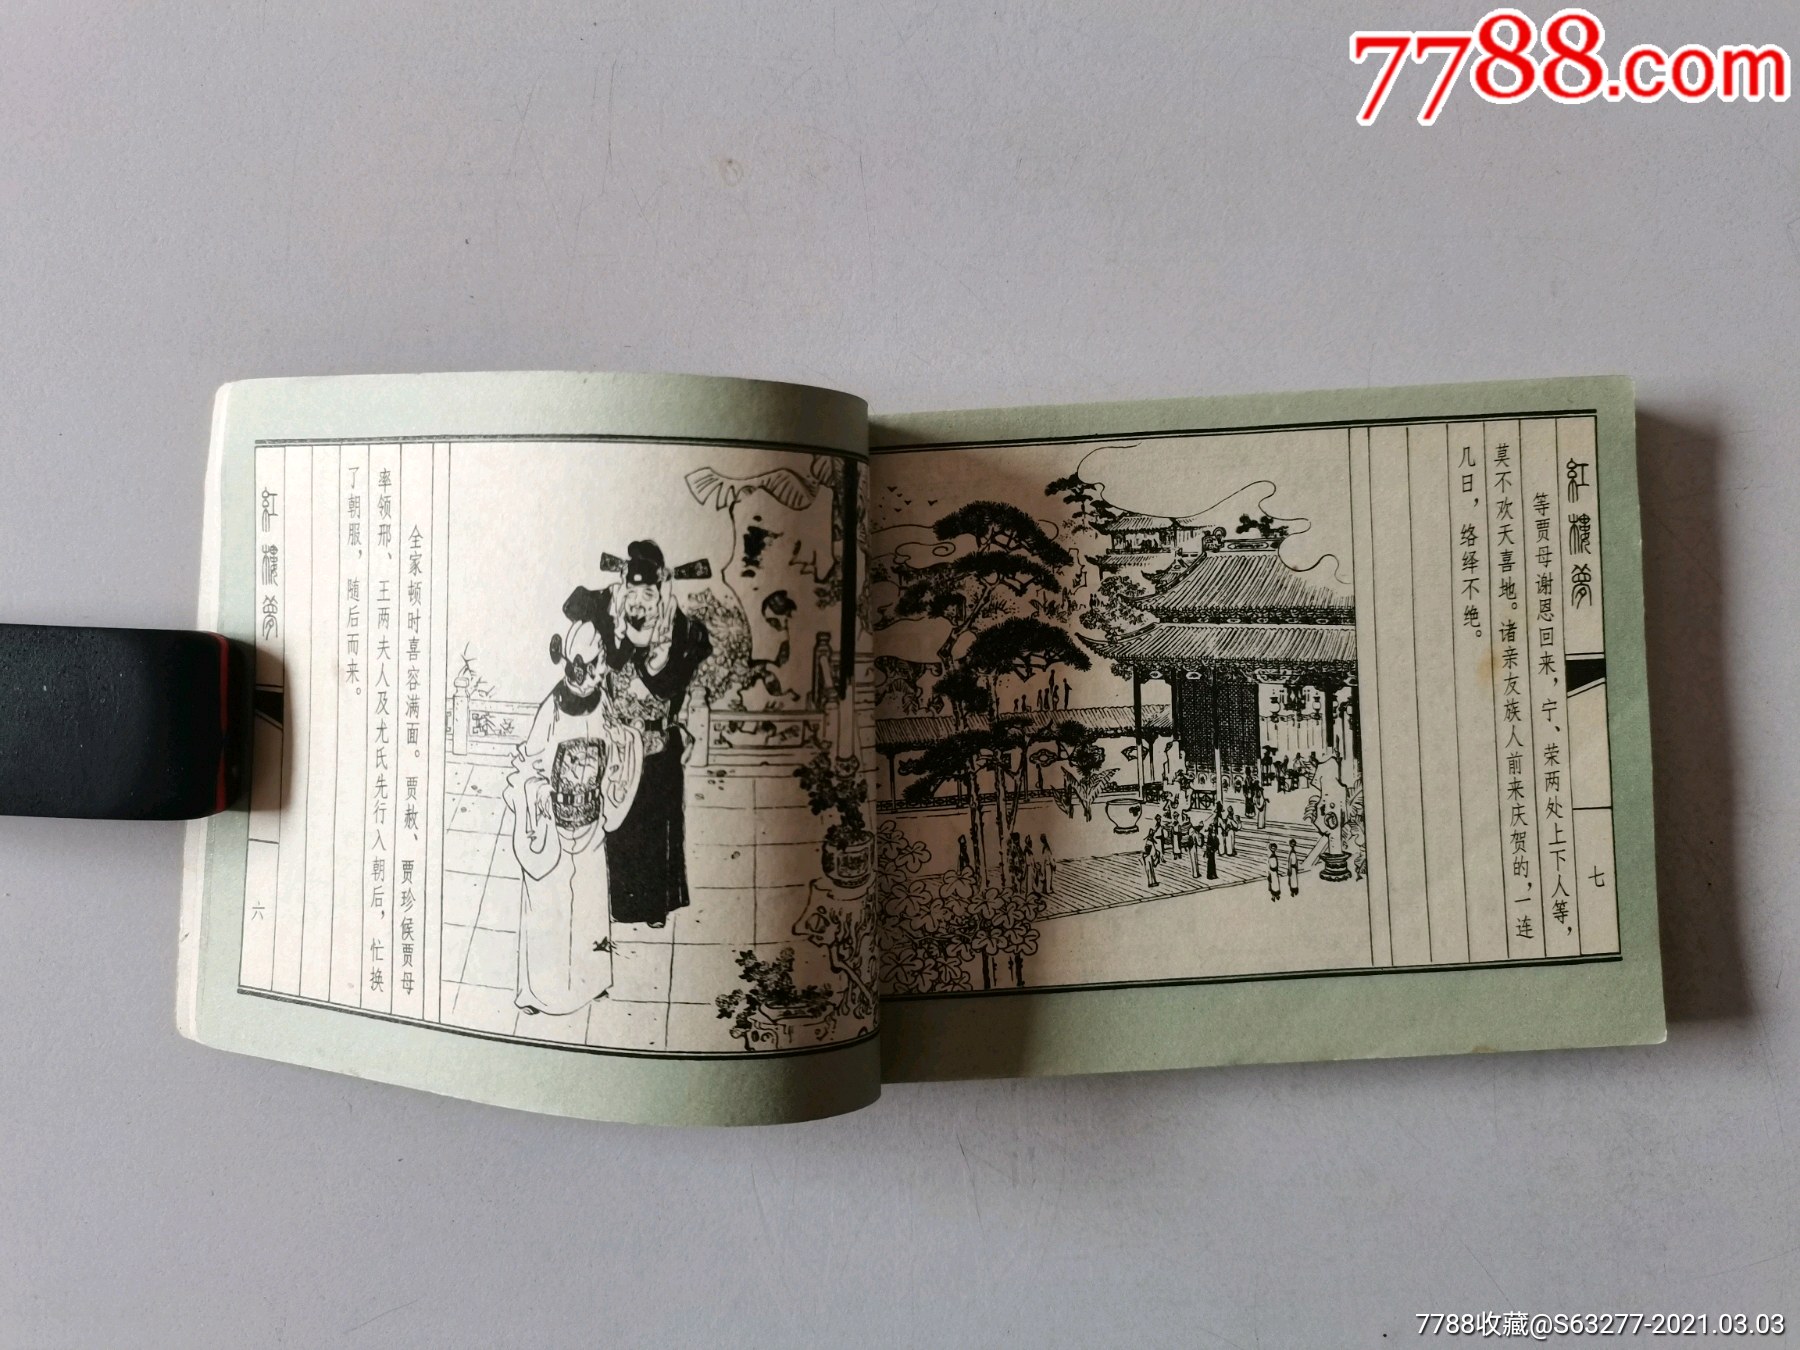 7788.com
紅樓夢
全家顿时喜容满面。贾赦、贾珍侯贾母
率领邢、王两夫人及尤氏先行入朝后，忙换
了朝服，随后而来。
六
紅樓夢
等贾母谢恩回来，宁、荣两处上下人等，
莫不欢天喜地。诸亲友族人前来庆贺的，一连
几日，络绎不绝。
七
7788收藏@S63277-2021.03.03